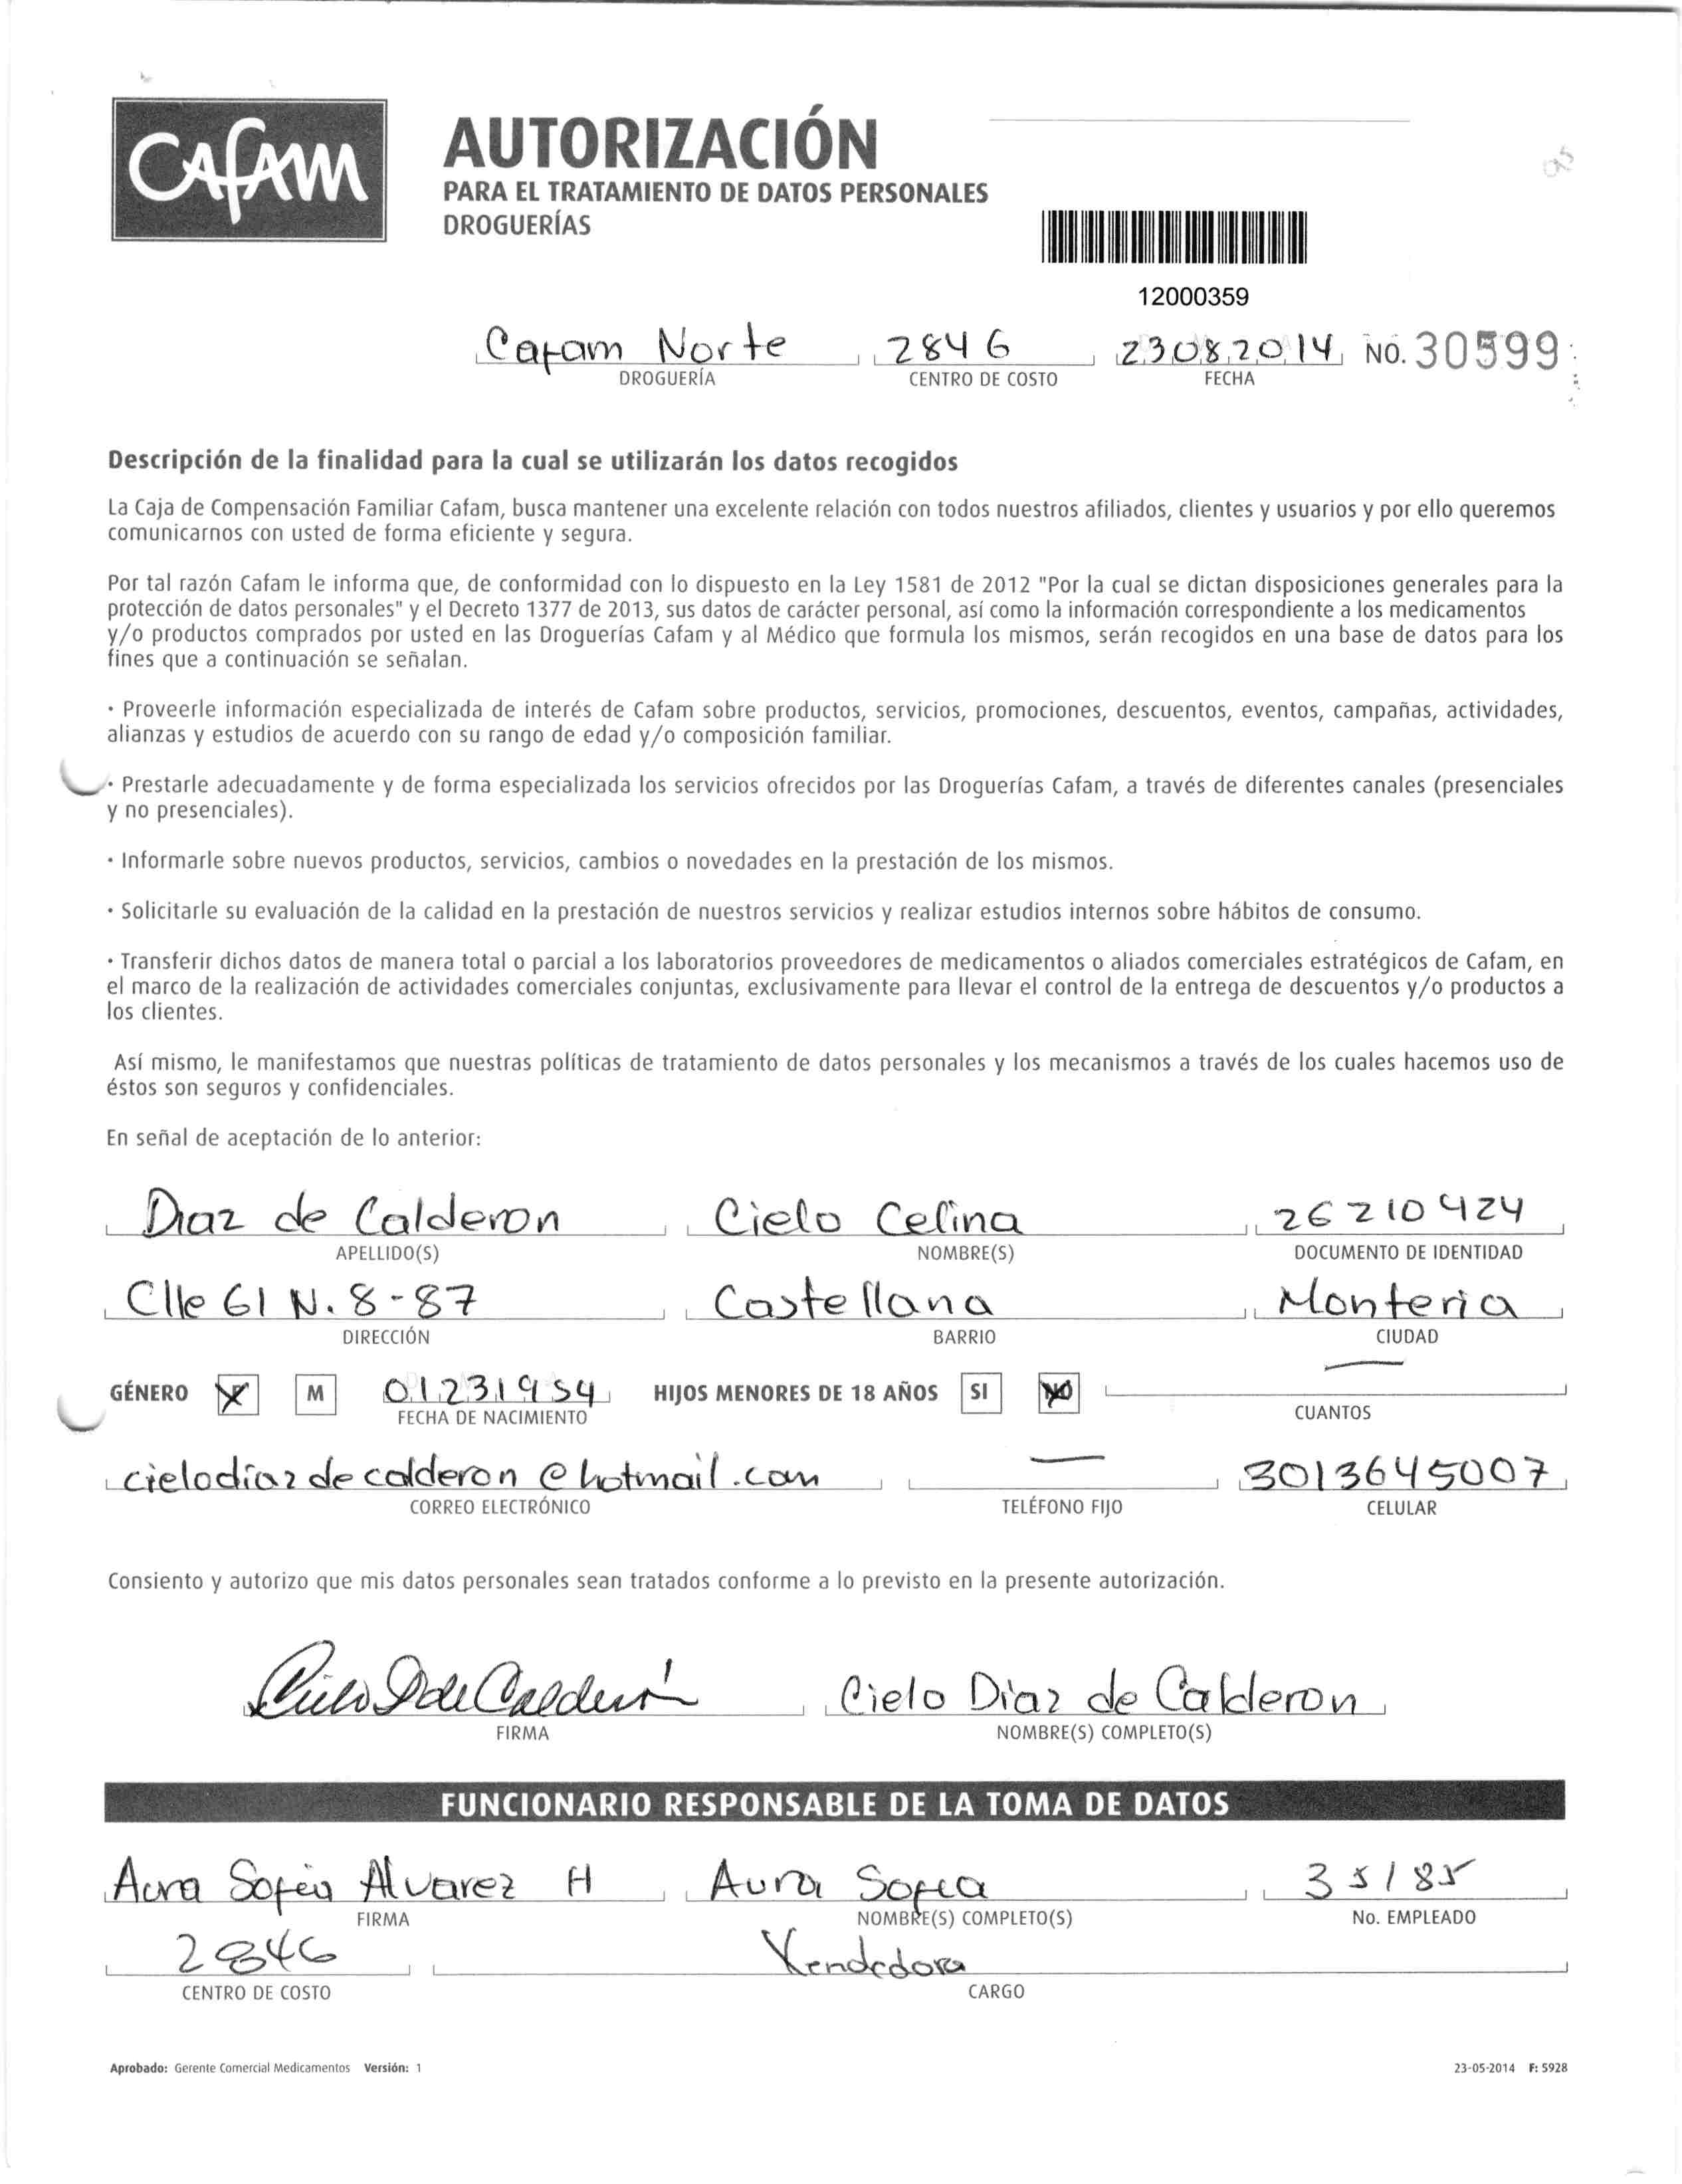 CAFAM
AUTORIZACIÓN
PARA EL TRATAMIENTO DE DATOS PERSONALES
DROGUERÍAS
12000359
Cafam Norte 2846 23082014 NO. 30599
DROGUERÍA CENTRO DE COSTO FECHA
Descripción de la finalidad para la cual se utilizarán los datos recogidos
La Caja de Compensación Familiar Cafam, busca mantener una excelente relación con todos nuestros afiliados, clientes y usuarios y por ello queremos
comunicarnos con usted de forma eficiente y segura.
Por tal razón Cafam le informa que, de conformidad con lo dispuesto en la Ley 1581 de 2012 "Por la cual se dictan disposiciones generales para la
protección de datos personales" y el Decreto 1377 de 2013, sus datos de carácter personal, así como la información correspondiente a los medicamentos
y/o productos comprados por usted en las Droguerías Cafam y al Médico que formula los mismos, serán recogidos en una base de datos para los
fines que a continuación se señalan.
· Proveerle información especializada de interés de Cafam sobre productos, servicios, promociones, descuentos, eventos, campañas, actividades,
alianzas y estudios de acuerdo con su rango de edad y/o composición familiar.
· Prestarle adecuadamente y de forma especializada los servicios ofrecidos por las Droguerías Cafam, a través de diferentes canales (presenciales
y no presenciales).
· Informarle sobre nuevos productos, servicios, cambios o novedades en la prestación de los mismos.
· Solicitarle su evaluación de la calidad en la prestación de nuestros servicios y realizar estudios internos sobre hábitos de consumo.
· Transferir dichos datos de manera total o parcial a los laboratorios proveedores de medicamentos o aliados comerciales estratégicos de Cafam, en
el marco de la realización de actividades comerciales conjuntas, exclusivamente para llevar el control de la entrega de descuentos y/o productos a
los clientes.
Así mismo, le manifestamos que nuestras políticas de tratamiento de datos personales y los mecanismos a través de los cuales hacemos uso de
éstos son seguros y confidenciales.
En señal de aceptación de lo anterior:
Diaz de Calderon Cielo Celina 26210424
APELLIDO(S) NOMBRE(S) DOCUMENTO DE IDENTIDAD
Clle 61 N. 8-87 Castellana Monteria
DIRECCIÓN BARRIO CIUDAD
GÉNERO M 01231954 HIJOS MENORES DE 18 AÑOS SI NO
FECHA DE NACIMIENTO CUANTOS
cielodiazdecalderon@hotmail.com 3013645007
CORREO ELECTRÓNICO TELÉFONO FIJO CELULAR
Consiento y autorizo que mis datos personales sean tratados conforme a lo previsto en la presente autorización.
Cielo D de Calderón Cielo Diaz de Calderon
FIRMA NOMBRE(S) COMPLETO(S)
FUNCIONARIO RESPONSABLE DE LA TOMA DE DATOS
Aura Sofia Alvarez H Aura Sofia 35185
FIRMA NOMBRE(S) COMPLETO(S) No. EMPLEADO
2846 Vendedora
CENTRO DE COSTO CARGO
Aprobado: Gerente Comercial Medicamentos Versión: 1 23-05-2014 F: 5928